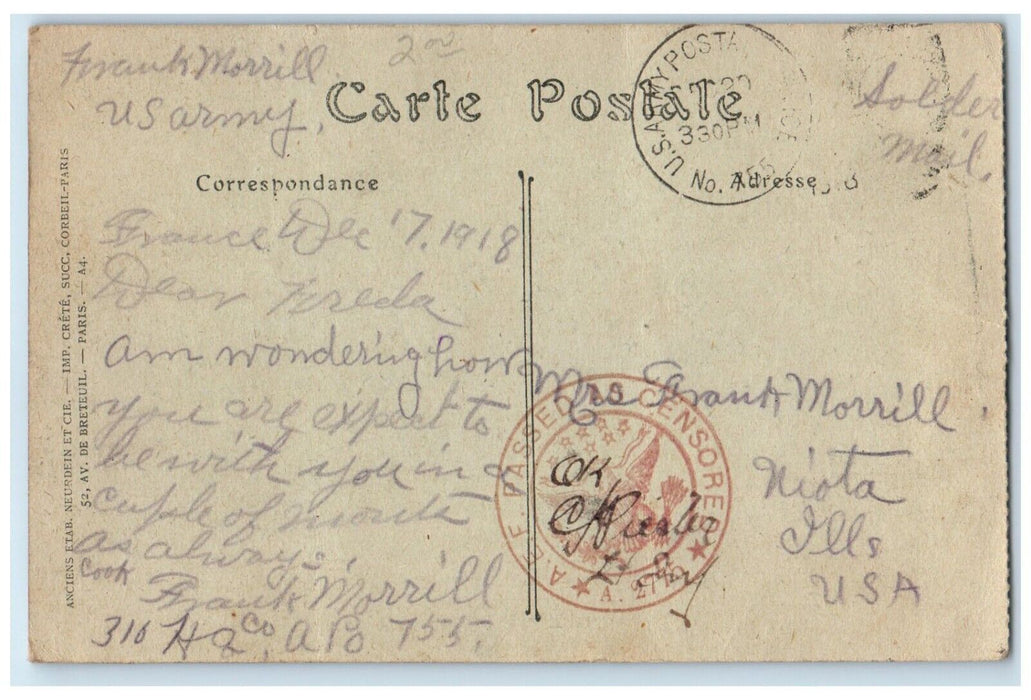 Frank Morrill
US army,
2 00
Carte Postale
Solder
Mail
U.S. ARMY POSTAL
330PM
No. 755
Correspondance
Adresse
France Dec 17, 1918
Dear Freda
am wondering how
you are expect to
be with you in a
cuple of monts
as always
Cook
Frank Morrill
316 Hq Co, APO 755.
Mrs Frank Morrill
Niota
Ills
USA
A.E.F. PASSED AS CENSORED
A. 27
OK
ANCIENS ETAB. NEURDEIN ET CIE. — IMP. CRÉTÉ, SUCC, CORBEIL-PARIS
52, AV. DE BRETEUIL. — PARIS. — A4.